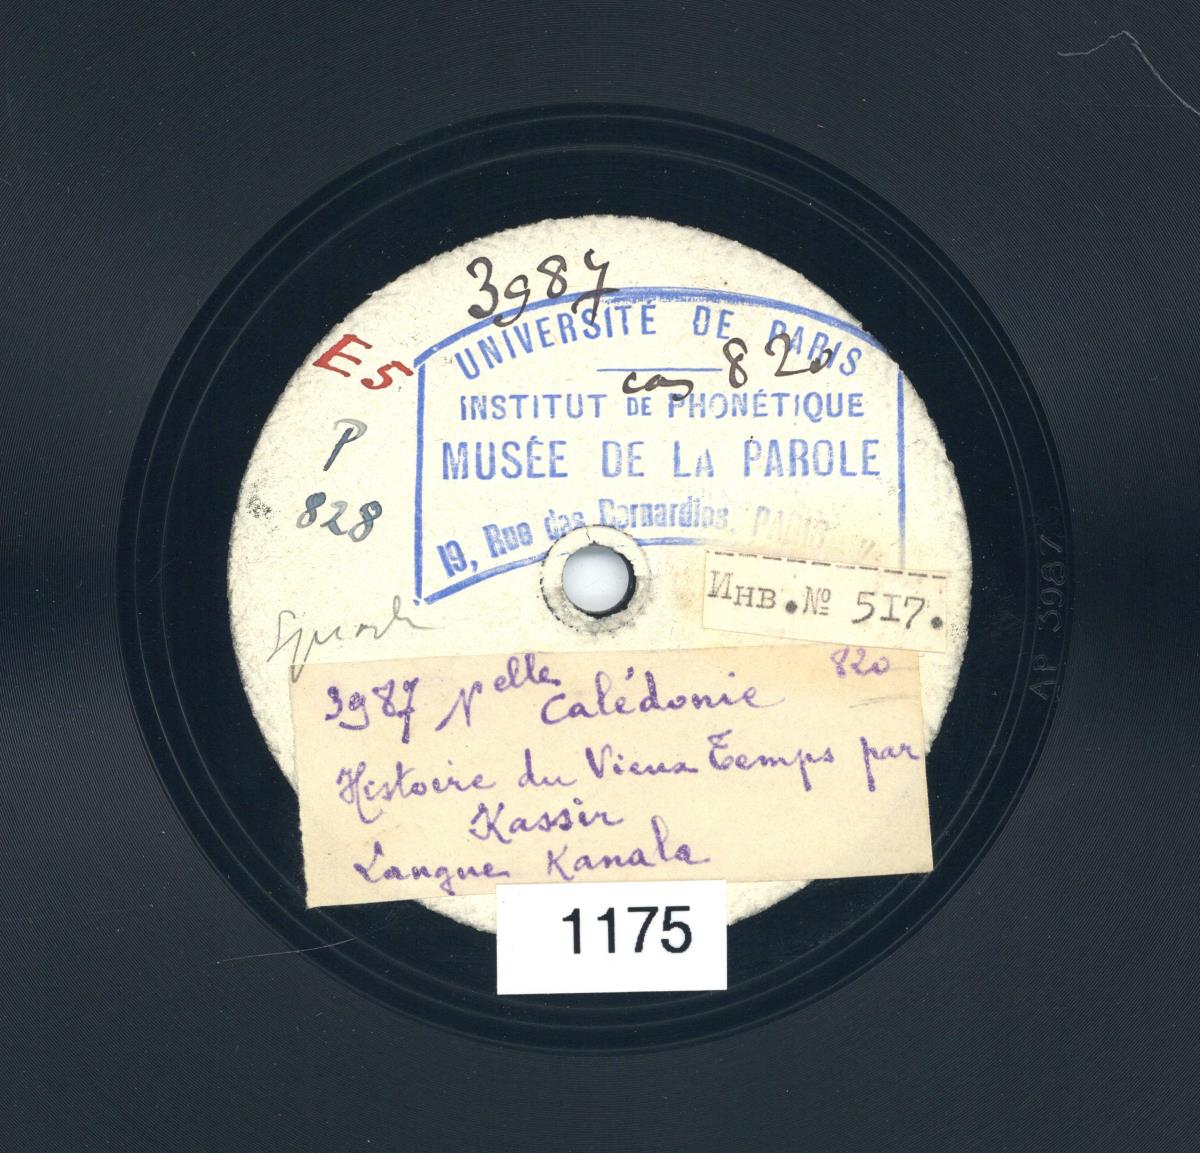 3987
UNIVERSITÉ DE PARIS
cas 820
INSTITUT DE PHONÉTIQUE
MUSÉE DE LA PAROLE
19, Rue des Bernardins, PARIS
E5
P
828
Инв.№ 5I7.
820
3987 Nelle Calédonie
Histoire du Vieux Temps par
Kassir
Langue Kanala
1175
AP 3987